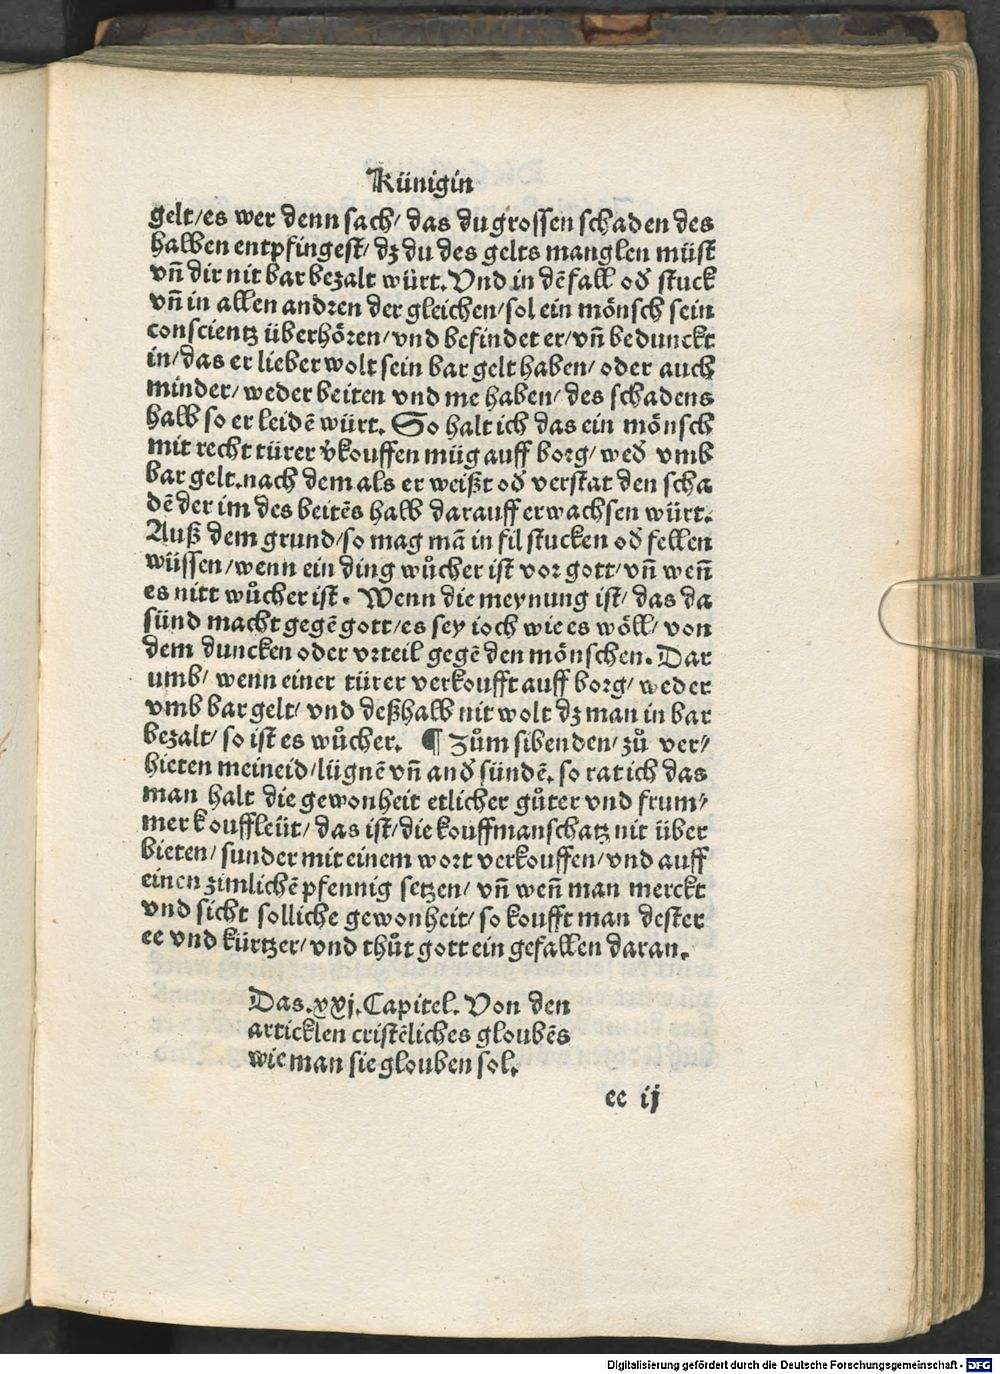 Künigin
gelt/ es wer denn sach/ das du grossen schaden des
halben entpfingest/ dz du des gelts manglen müst
vn̄ dir nit bar bezalt würt. Vnd in dē fall oď stuck
vn̄ in allen andren der gleichen/ sol ein mönsch sein
conscientz überhören/ vnd befindet er/ vn̄ bedunckt
in/ das er lieber wolt sein bar gelt haben/ oder auch
minder/ weder beiten vnd me haben/ des schadens
halb so er leidē würt. So halt ich das ein mönsch
mit recht türer v̇kouffen müg auff borg/ weď vmb
bar gelt. nach dem als er weißt oď verstat den scha
dē der im des beitēs halb darauff erwachsen würt.
Auß dem grund/ so mag mā in fil stucken oď fellen
wüssen/ wenn ein ding wůcher ist vor gott/ vn̄ wen̄
es nitt wůcher ist. Wenn die meynung ist/ das da
sünd macht gegē gott/ es sey ioch wie es wöll/ von
dem duncken oder vrteil gegē den mönschen. Dar
umb/ wenn einer türer verkoufft auff borg/ weder
vmb bar gelt/ vnd deßhalb nit wolt dz man in bar
bezalt/ so ist es wůcher. ¶ Zům sibenden/ zů ver/
hieten meineid/ lügnē vn̄ anď sündē. so rat ich das
man halt die gewonheit etlicher gůter vnd frum/
mer kouffleüt/ das ist/ die kouffmanschatz nit über
bieten/ sunder mit einem wort verkouffen/ vnd auff
einen zimlichē pfennig setzen/ vn̄ wen̄ man merckt
vnd sicht solliche gewonheit/ so koufft man dester
ee vnd kürtzer/ vnd thůt gott ein gefallen daran.
Das .xxj. Capitel. Von den
articklen cristēliches gloubēs
wie man sie glouben sol.
ee ij
Digitalisierung gefördert durch die Deutsche Forschungsgemeinschaft - DFG